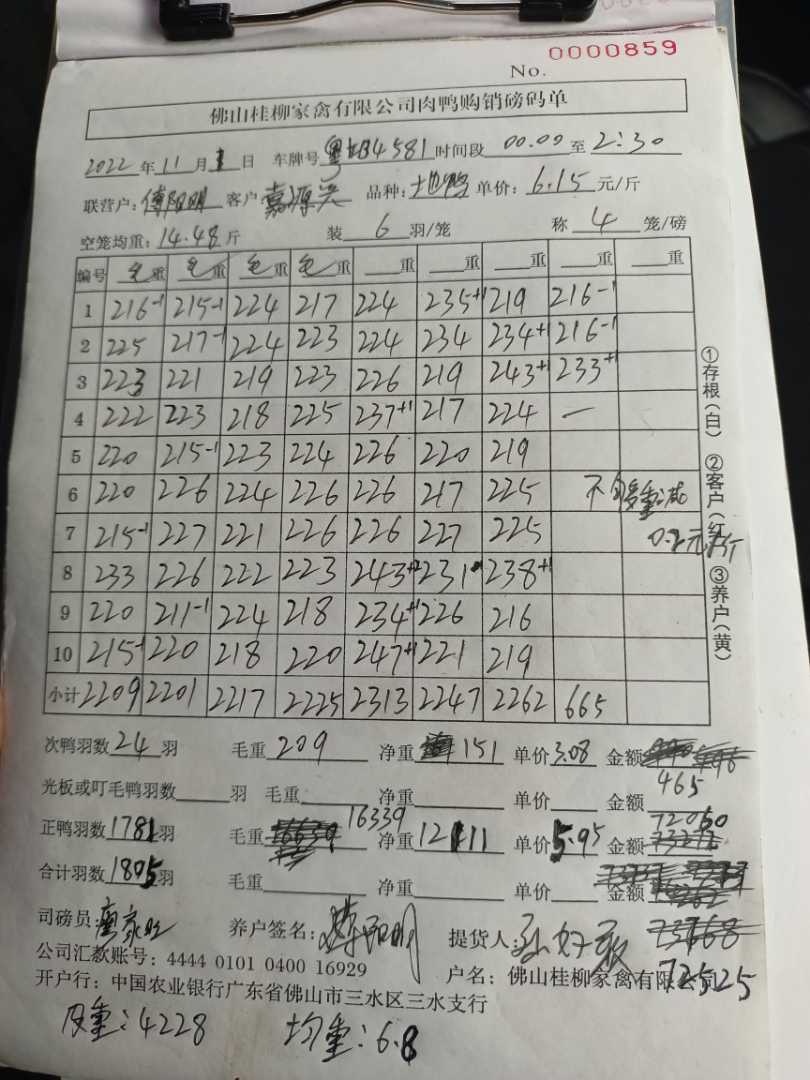 No. 0000859
佛山桂柳家禽有限公司肉鸭购销磅码单
2022年11月1日 车牌号 时间段 00.00 至 2:30
联营户: 傅阳明 客户 嘉源兴 品种: 土鸭 单价: 6.15 元/斤
空笼均重: 14.48 斤 装 6 羽/笼 称 4 笼/磅
编号 毛重 毛重 毛重 毛重 重 重 重 重 重
1 216-1 215-1 224 217 224 235+1 219 216-1
2 225 217-1 224 223 224 234 234+1 216-1
3 223 221 219 223 226 219 243+1 233+1
4 222 223 218 225 237+1 217 224 —
5 220 215-1 223 224 226 220 219
6 220 226 224 226 226 217 225 不够重减
7 215-1 227 221 226 226 227 225 0.2元/斤
8 233 226 222 223 243+2 231 238+1
9 220 211-1 224 218 234+1 226 216
10 215-1 220 218 220 247+1 221 219
小计 2209 2201 2217 2225 2313 2247 2262 665
①存根(白) ②客户(红) ③养户(黄)
次鸭羽数 24 羽 毛重 209 净重 151 单价 3.08 金额 465
光板或叮毛鸭羽数 羽 毛重 净重 单价 金额
正鸭羽数 1781 羽 毛重 16339 净重 12111 单价 5.95 金额 72060
合计羽数 1805 羽 毛重 净重 单价 金额 72525
司磅员: 养户签名: 傅阳明 提货人:
公司汇款账号: 4444 0101 0400 16929 户名: 佛山桂柳家禽有限公司
开户行: 中国农业银行广东省佛山市三水区三水支行
皮重: 4228 均重: 6.8